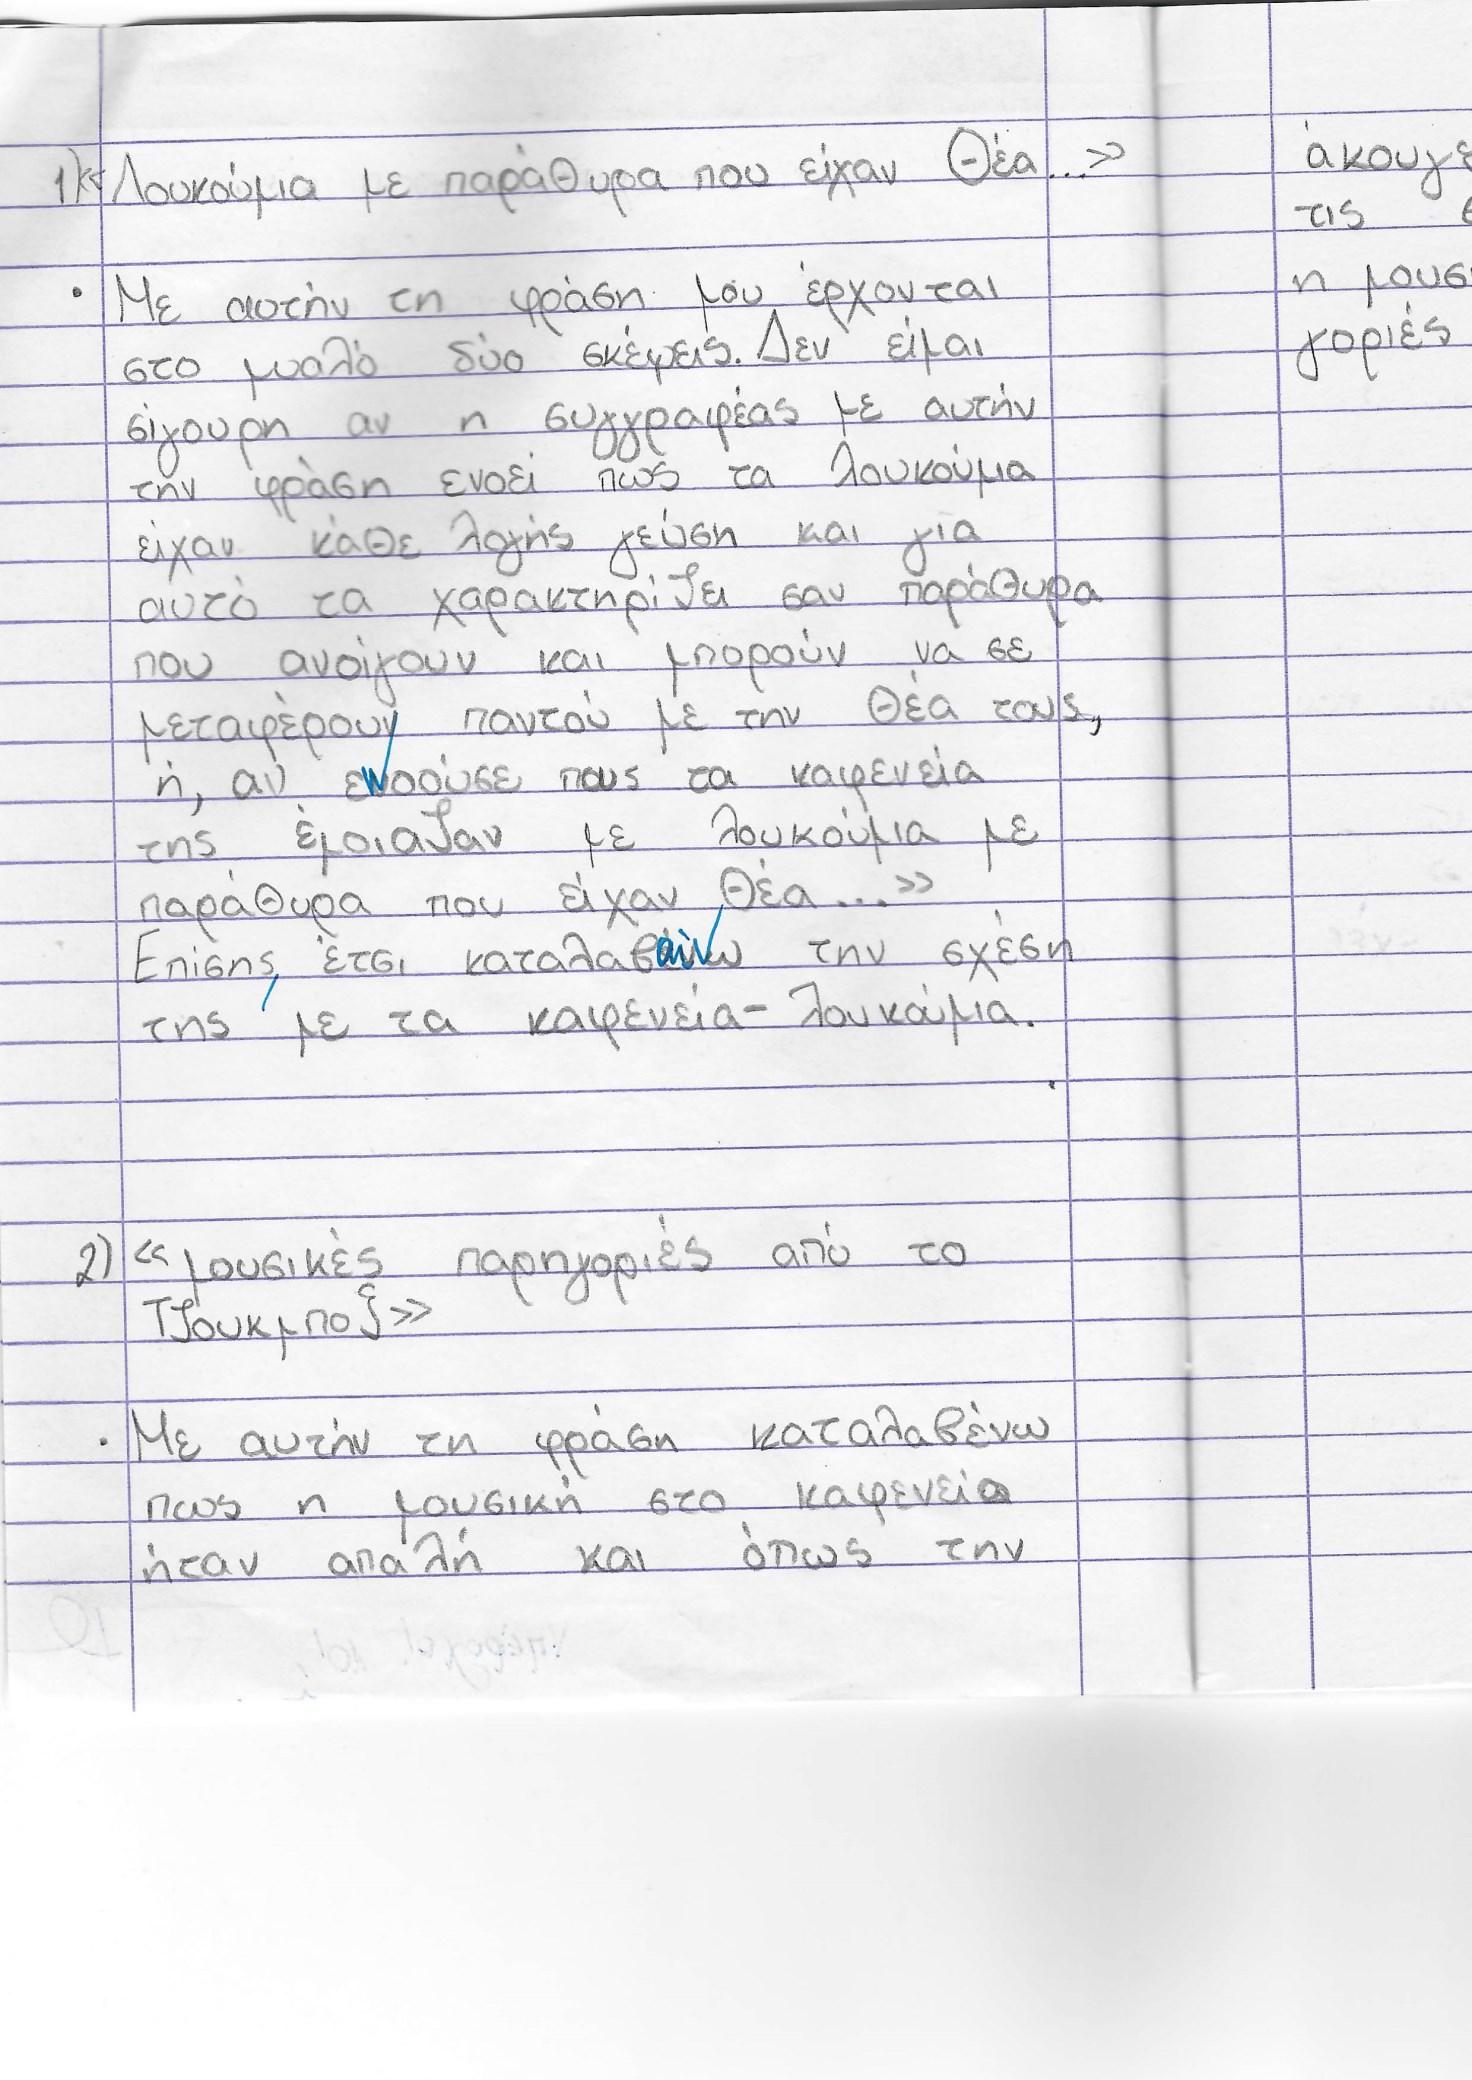 1) «Λουκούμια με παράθυρα που είχαν θέα...»
• Με αυτήν τη φράση μου έρχονται
στο μυαλό δύο σκέψεις. Δεν είμαι
σίγουρη αν η συγγραφέας με αυτήν
την φράση ενοεί πως τα λουκούμια
είχαν κάθε λογής γεύση και για
αυτό τα χαρακτηρίζει σαν παράθυρα
που ανοίγουν και μπορούν να σε
μεταφέρουν παντού με την θέα τους,
ή, αν εννοούσε πως τα καφενεία
της έμοιαζαν με λουκούμια με
παράθυρα που είχαν θέα...»
Επίσης, έτσι καταλαβαίνω την σχέση
της με τα καφενεία-λουκούμια.
2) «μουσικές παρηγοριές από το
Τζουκμποξ»
• Με αυτήν τη φράση καταλαβένω
πως η μουσική στο καφενεία
ήταν απαλή και όπως την
άκουγε
τις
η μουσ
γοριές